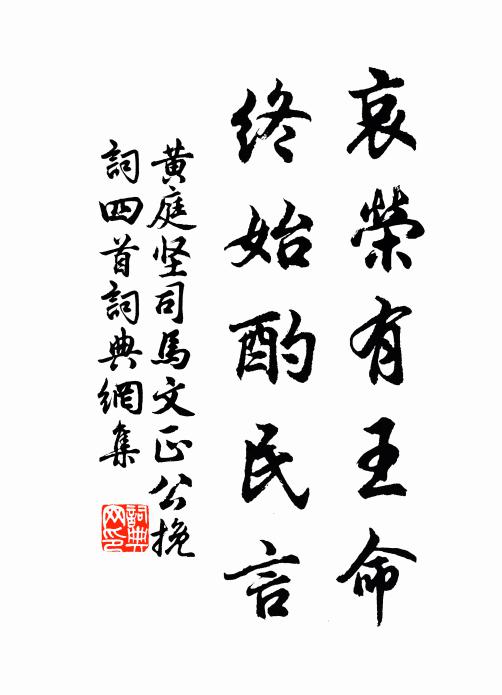 哀榮有王命
終始酌民言
黄庭坚司馬文正公挽
詞四首詞典網集
詞典
网印